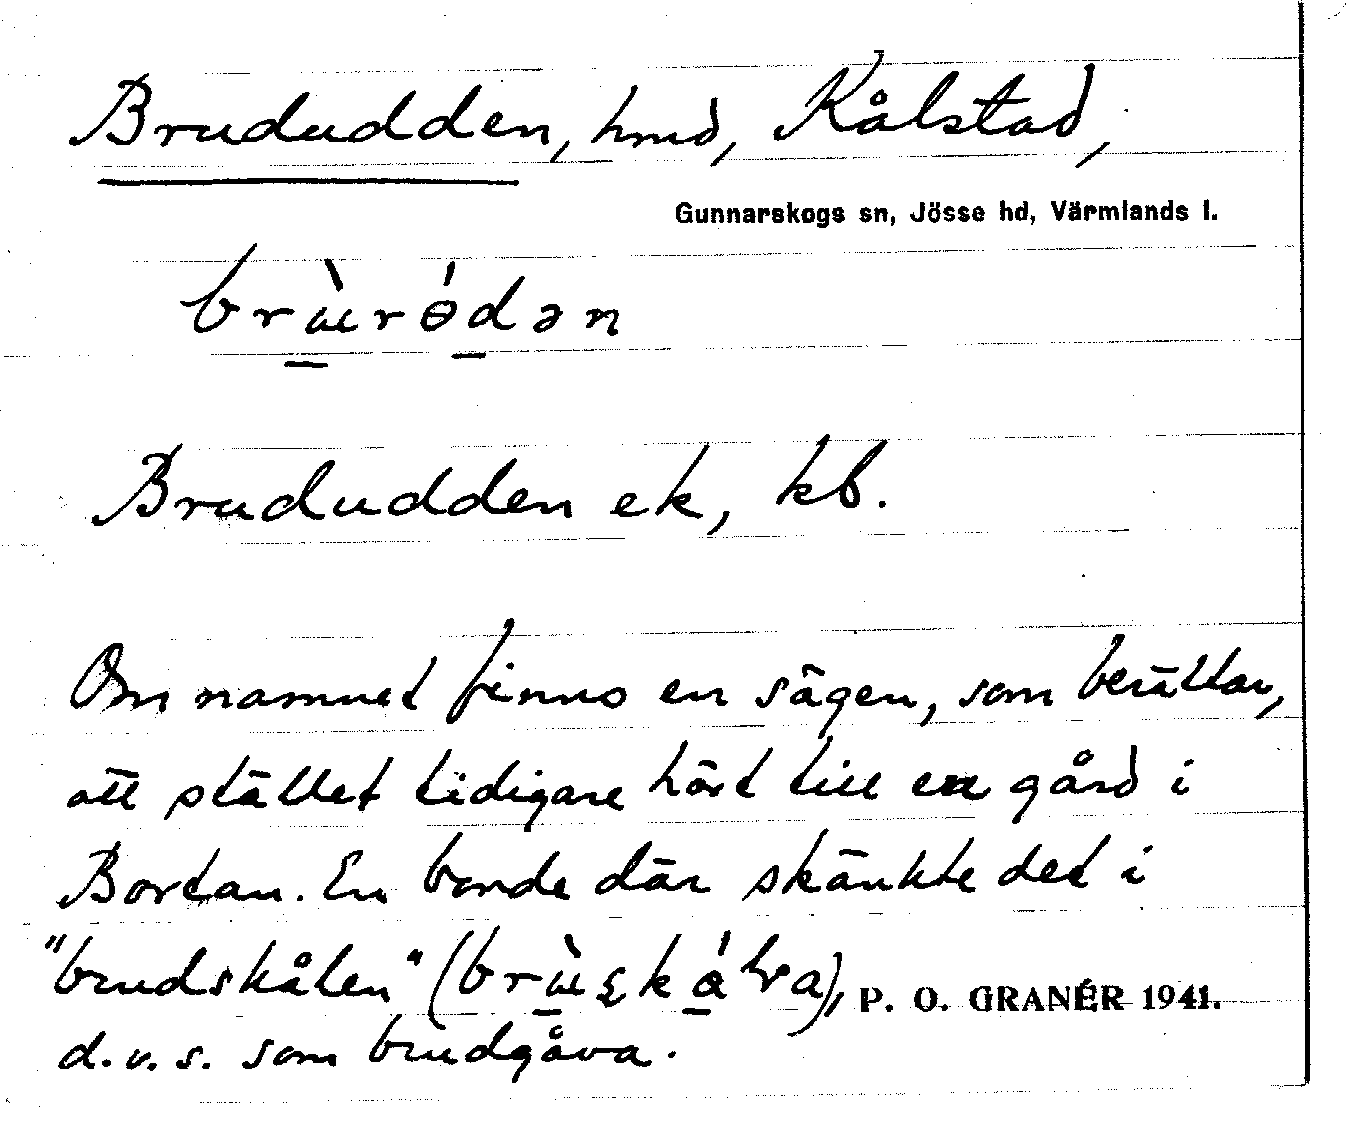 Brududden, hmd, Kålstad,
Gunnarskogs sn, Jösse hd, Värmlands l.
Brududden ek, kb.
Om namnet finns en sägen, som berättar,
att stället tidigare hört till en gård i
Bortan. En bonde där skänkte det i
"brudskålen"
P. O. GRANÉR 1941.
d.v.s. som brudgåva.